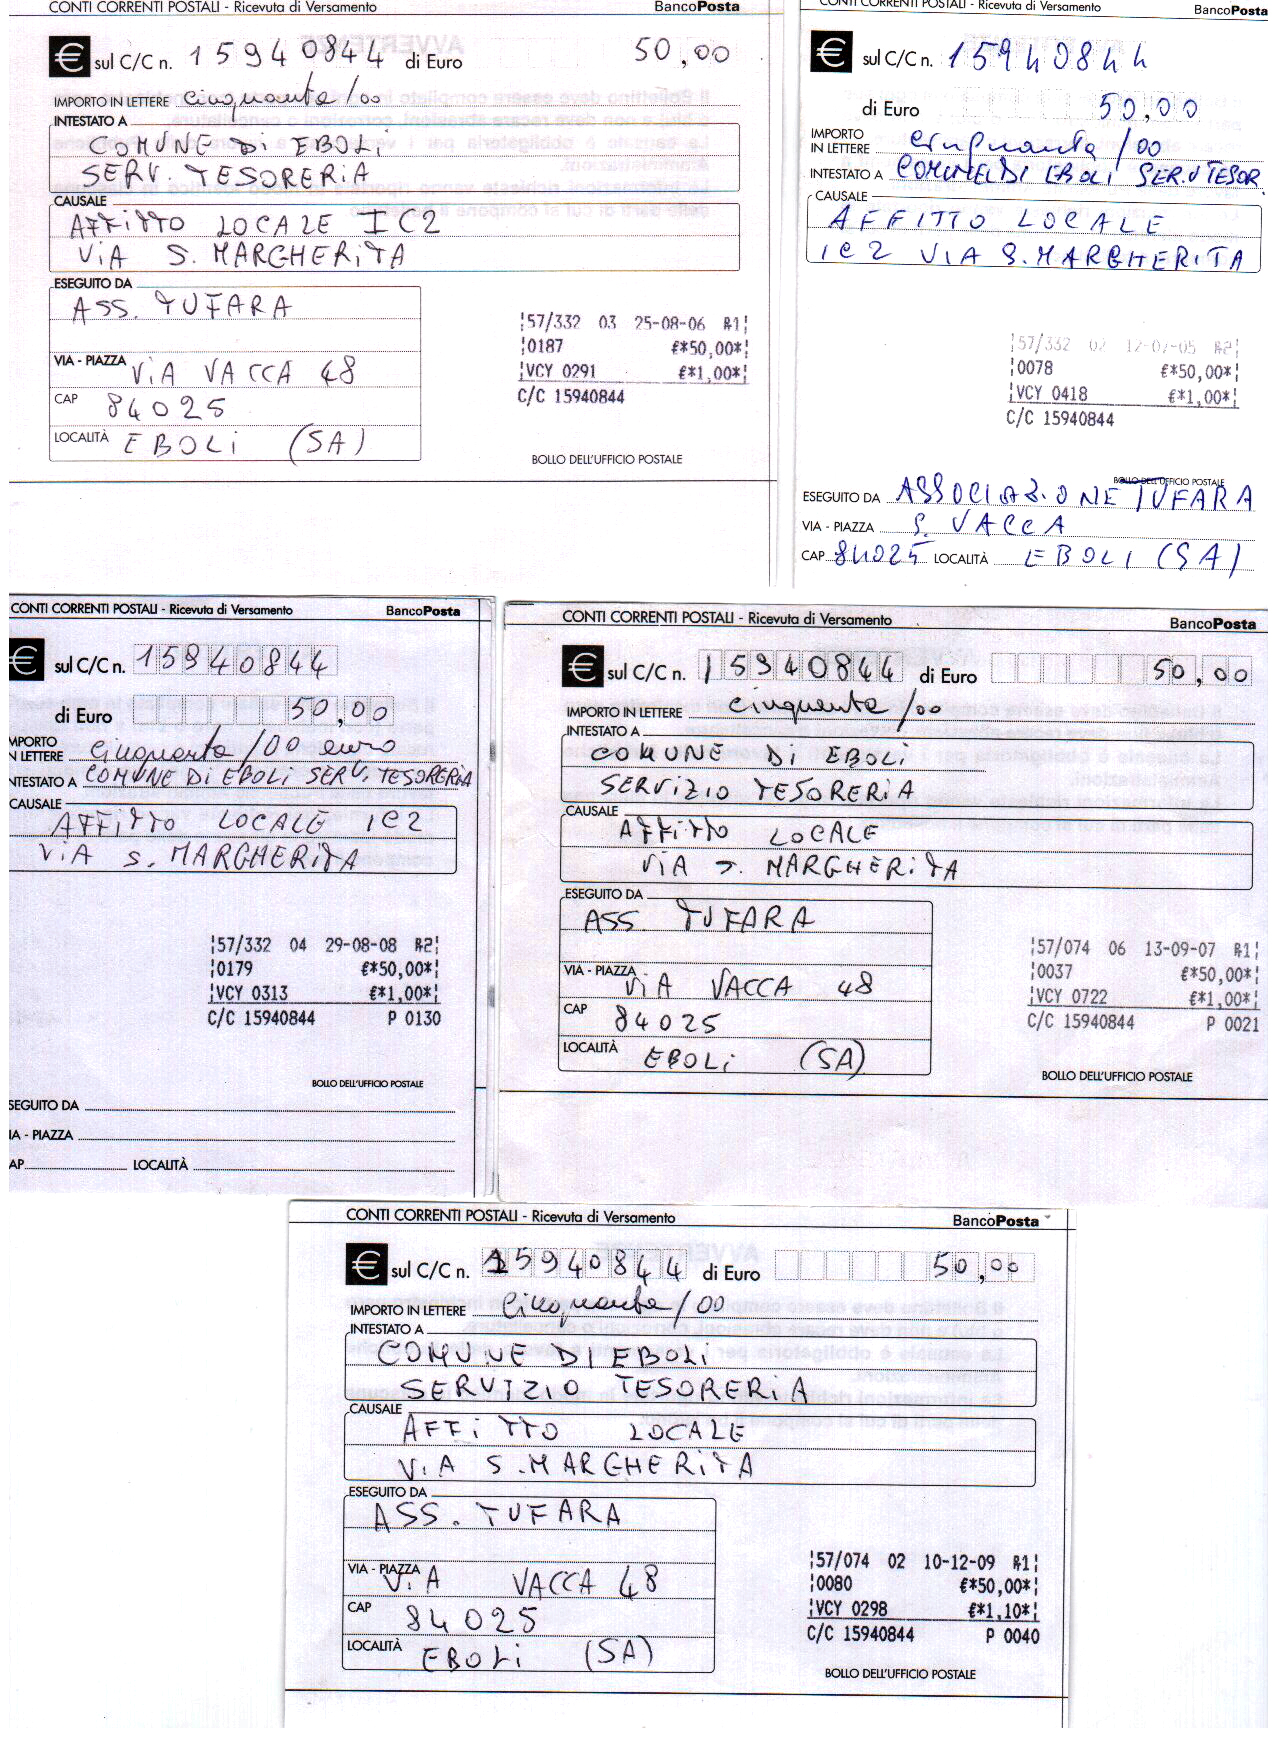 CONTI CORRENTI POSTALI - Ricevuta di Versamento BancoPosta
€ sul C/C n. 15940844 di Euro 50,00
IMPORTO IN LETTERE cinquanta/00
INTESTATO A
COMUNE Di EBOLi
SERV. TESORERiA
CAUSALE
AFFiTTO LOCALE IC2
ViA S. MARGHERiTA
ESEGUITO DA
ASS. TUFARA
VIA - PIAZZA ViA VACCA 48
CAP 84025
LOCALITÀ EBOLi (SA)
57/332 03 25-08-06 R1
0187 €*50,00*
VCY 0291 €*1,00*
C/C 15940844
BOLLO DELL'UFFICIO POSTALE
CONTI CORRENTI POSTALI - Ricevuta di Versamento BancoPosta
€ sul C/C n. 15940844
di Euro 50,00
IMPORTO
IN LETTERE cinquanta/00
INTESTATO A COMUNE DI EBOLI SERV TESOR
CAUSALE
AFFITTO LOCALE
IC2 VIA S. MARGHERITA
57/332 02 12-07-05 R2
0078 €*50,00*
VCY 0418 €*1,00*
C/C 15940844
BOLLO DELL'UFFICIO POSTALE
ESEGUITO DA ASSOCIAZIONE TUFARA
VIA - PIAZZA S. VACCA
CAP 84025 LOCALITÀ EBOLI (SA)
CONTI CORRENTI POSTALI - Ricevuta di Versamento BancoPosta
€ sul C/C n. 15940844
di Euro 50,00
MPORTO
N LETTERE cinquanta/00 euro
NTESTATO A COMUNE Di EBOLi SERV. TESORERiA
CAUSALE
AFFiTTO LOCALE IC2
ViA S. MARGHERiTA
57/332 04 29-08-08 R2
0179 €*50,00*
VCY 0313 €*1,00*
C/C 15940844 P 0130
BOLLO DELL'UFFICIO POSTALE
SEGUITO DA
IA - PIAZZA
AP LOCALITÀ
CONTI CORRENTI POSTALI - Ricevuta di Versamento BancoPosta
€ sul C/C n. 15940844 di Euro 50,00
IMPORTO IN LETTERE cinquanta/00
INTESTATO A
COMUNE Di EBOLi
SERViZIO TESORERiA
CAUSALE
AFFiTTO LOCALE
ViA S. MARGHERiTA
ESEGUITO DA
ASS. TUFARA
VIA - PIAZZA ViA VACCA 48
CAP 84025
LOCALITÀ EBOLi (SA)
57/074 06 13-09-07 R1
0037 €*50,00*
VCY 0722 €*1,00*
C/C 15940844 P 0021
BOLLO DELL'UFFICIO POSTALE
CONTI CORRENTI POSTALI - Ricevuta di Versamento BancoPosta
€ sul C/C n. 15940844 di Euro 50,00
IMPORTO IN LETTERE Cinquanta/00
INTESTATO A
COMUNE DI EBOLi
SERVIZIO TESORERiA
CAUSALE
AFFiTTO LOCALE
ViA S. MARGHERiTA
ESEGUITO DA
ASS. TUFARA
VIA - PIAZZA ViA VACCA 48
CAP 84025
LOCALITÀ EBOLi (SA)
57/074 02 10-12-09 R1
0080 €*50,00*
VCY 0298 €*1,10*
C/C 15940844 P 0040
BOLLO DELL'UFFICIO POSTALE